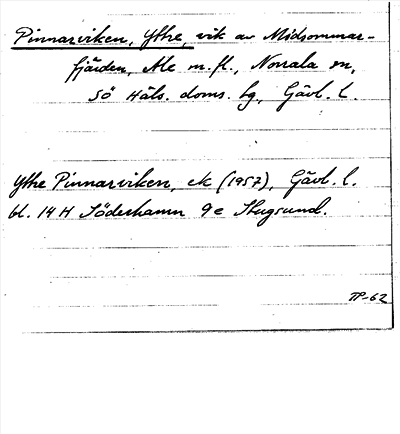 Pinnarviken, Yttre, vik av Midsommar-
fjärden, Ale m.fl., Norrala sn,
Sö Häls. doms. lg, Gävl. l.
Yttre Pinnarviken, ek (1957), Gävl. l.
bl. 14 H Söderhamn 9e Stugsund.
TP-62